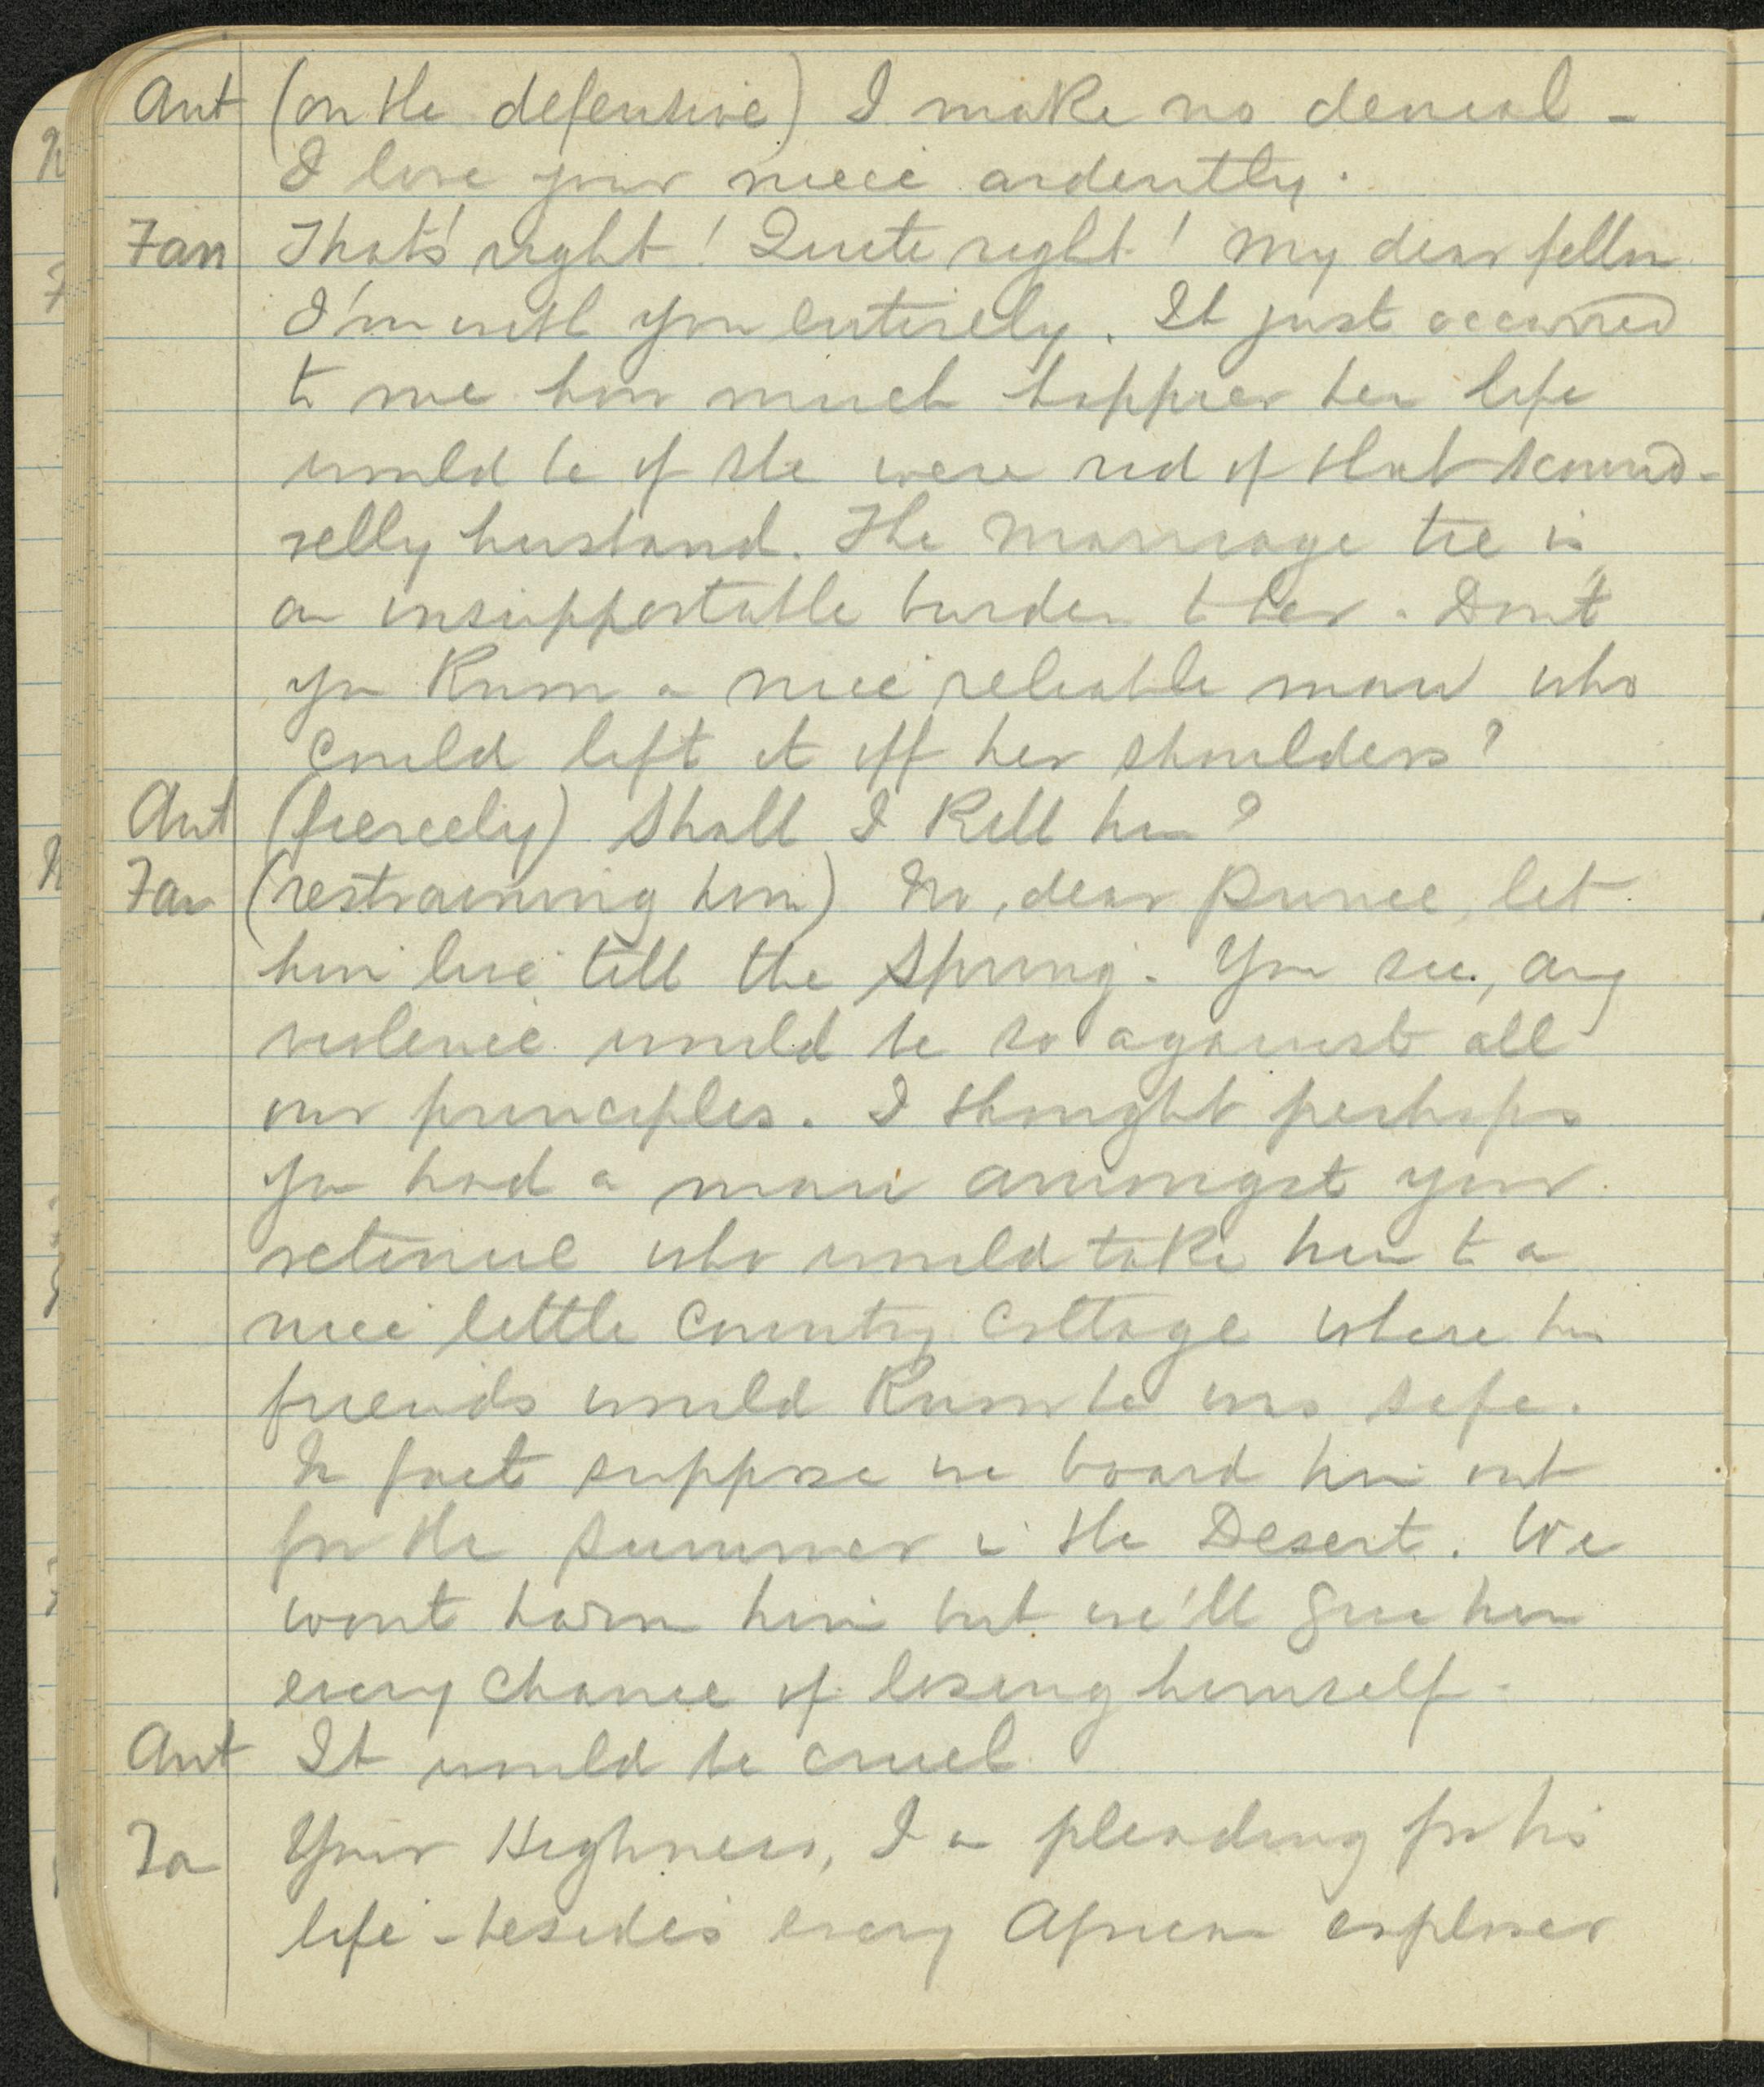 Ant (on the defensive) I make no denial -
I love your niece ardently.
Fan That's right! Quite right! My dear fellow
I'm with you entirely. It just occurred
to me how much happier her life
would be if she were rid of that scound-
relly husband. The Marriage tie is
an insupportable burden to her. Don't
you Know a nice reliable man who
could lift it off her shoulders?
Ant (fiercely) Shall I Kill him?
Fan (restraining him) No, dear Prince, let
him live till the Spring. You see, any
violence would be so against all
our principles. I thought perhaps
you had a man amongst your
retinue who would take him to a
nice little Country Cottage where his
friends would Know he was safe.
In fact suppose we board him out
for the summer in the Desert. We
wont harm him but we'll give him
every chance of losing himself.
Ant It would be cruel.
Fa Your Highness, I am pleading for his
life - besides every African explorer